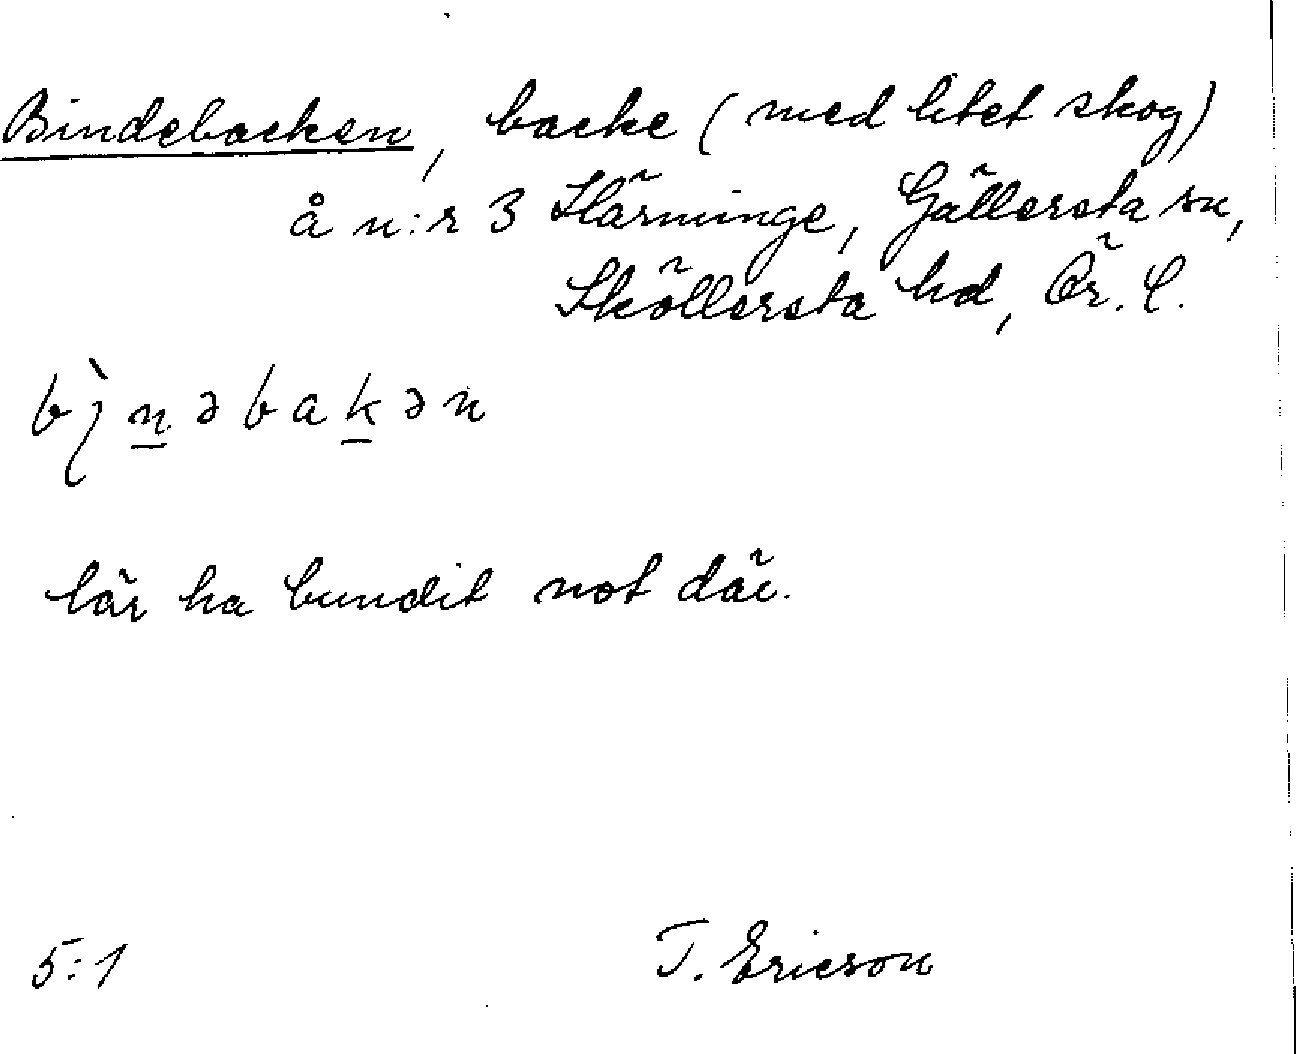 Bindebacken, backe (med litet skog)
å n:r 3 Härminge, Gällersta sn,
Sköllersta hd, Ör. l.
bìn̲əbak̲ən
lär ha bundit not där.
5:1 T. Ericson